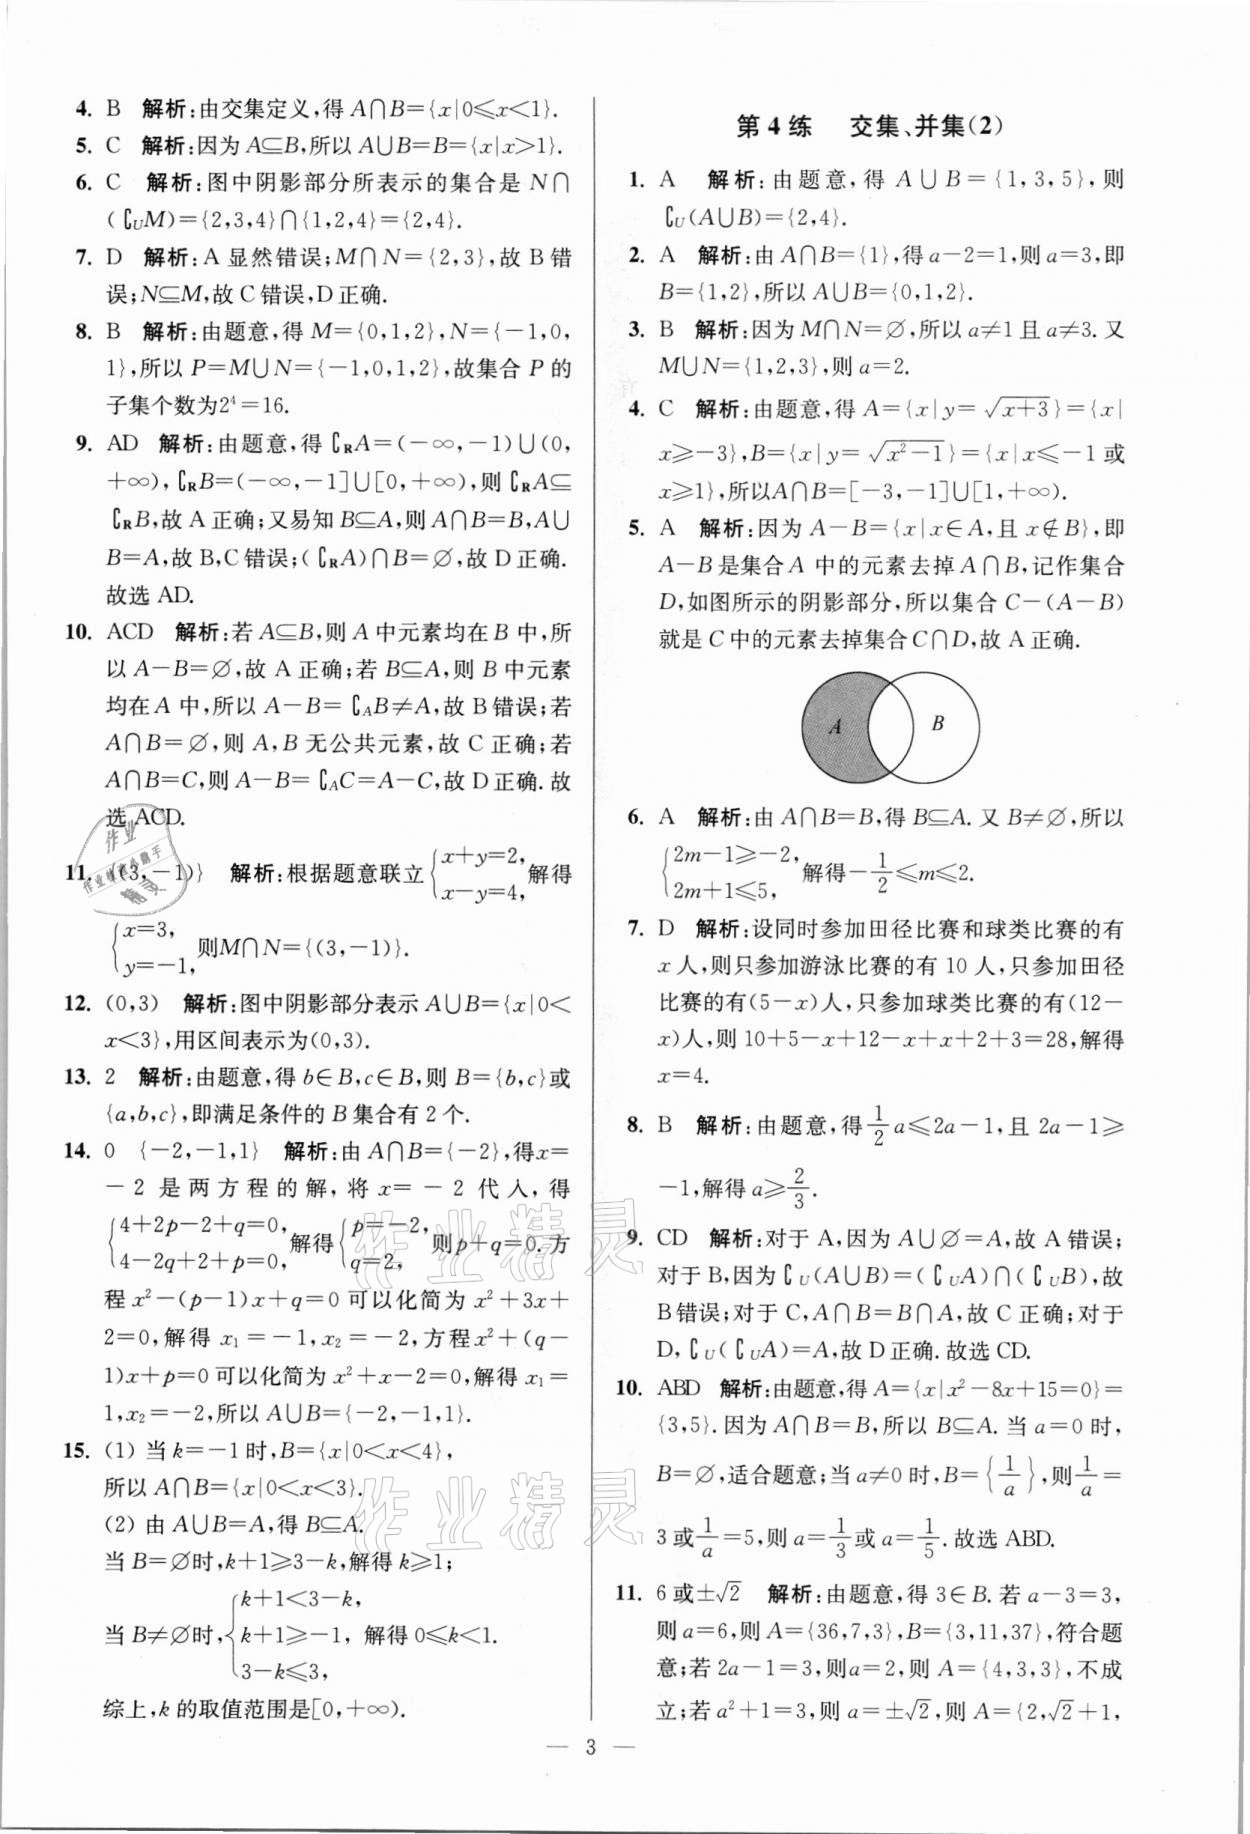 4. B 解析:由交集定义,得 A∩B={x|0≤x<1}.
5. C 解析:因为 A⊆B,所以 A∪B=B={x|x>1}.
6. C 解析:图中阴影部分所表示的集合是 N∩
(∁UM)={2,3,4}∩{1,2,4}={2,4}.
7. D 解析:A 显然错误;M∩N={2,3},故 B 错
误;N⊆M,故 C 错误,D 正确.
8. B 解析:由题意,得 M={0,1,2},N={-1,0,
1},所以 P=M∪N={-1,0,1,2},故集合 P 的
子集个数为2⁴=16.
9. AD 解析:由题意,得 ∁RA=(-∞,-1)∪(0,
+∞),∁RB=(-∞,-1]∪[0,+∞),则 ∁RA⊆
∁RB,故 A 正确;又易知 B⊆A,则 A∩B=B,A∪
B=A,故 B,C 错误;(∁RA)∩B=∅,故 D 正确.
故选 AD.
10. ACD 解析:若 A⊆B,则 A 中元素均在 B 中,所
以 A-B=∅,故 A 正确;若 B⊆A,则 B 中元素
均在 A 中,所以 A-B=∁AB≠A,故 B 错误;若
A∩B=∅,则 A,B 无公共元素,故 C 正确;若
A∩B=C,则 A-B=∁AC=A-C,故 D 正确.故
选 ACD.
11. {(3,-1)} 解析:根据题意联立{x+y=2, x-y=4,解得
{x=3, y=-1,则M∩N={(3,-1)}.
12. (0,3) 解析:图中阴影部分表示 A∪B={x|0<
x<3},用区间表示为(0,3).
13. 2 解析:由题意,得 b∈B,c∈B,则 B={b,c}或
{a,b,c},即满足条件的 B 集合有 2 个.
14. 0 {-2,-1,1} 解析:由 A∩B={-2},得x=
-2 是两方程的解,将 x=-2 代入,得
{4+2p-2+q=0, 4-2q+2+p=0,解得{p=-2, q=2,则p+q=0.方
程 x²-(p-1)x+q=0 可以化简为 x²+3x+
2=0,解得 x₁=-1,x₂=-2,方程x²+(q-
1)x+p=0 可以化简为 x²+x-2=0,解得 x₁=
1,x₂=-2,所以 A∪B={-2,-1,1}.
15. (1) 当 k=-1 时,B={x|0<x<4},
所以 A∩B={x|0<x<3}.
(2) 由 A∪B=A,得 B⊆A.
当 B=∅时,k+1≥3-k,解得 k≥1;
当 B≠∅时,{k+1<3-k, k+1≥-1, 3-k≤3, 解得 0≤k<1.
综上,k 的取值范围是[0,+∞).
第 4 练 交集、并集(2)
1. A 解析:由题意,得 A∪B={1,3,5},则
∁U(A∪B)={2,4}.
2. A 解析:由 A∩B={1},得 a-2=1,则 a=3,即
B={1,2},所以 A∪B={0,1,2}.
3. B 解析:因为 M∩N=∅,所以 a≠1 且 a≠3.又
M∪N={1,2,3},则 a=2.
4. C 解析:由题意,得 A={x|y=√(x+3)}={x|
x≥-3},B={x|y=√(x²-1)}={x|x≤-1 或
x≥1},所以A∩B=[-3,-1]∪[1,+∞).
5. A 解析:因为 A-B={x|x∈A,且 x∉B},即
A-B 是集合 A 中的元素去掉 A∩B,记作集合
D,如图所示的阴影部分,所以集合 C-(A-B)
就是 C 中的元素去掉集合 C∩D,故 A 正确.
A B
6. A 解析:由 A∩B=B,得 B⊆A.又 B≠∅,所以
{2m-1≥-2, 2m+1≤5, 解得-1/2≤m≤2.
7. D 解析:设同时参加田径比赛和球类比赛的有
x 人,则只参加游泳比赛的有 10 人,只参加田径
比赛的有(5-x)人,只参加球类比赛的有(12-
x)人,则 10+5-x+12-x+x+2+3=28,解得
x=4.
8. B 解析:由题意,得1/2a≤2a-1,且 2a-1≥
-1,解得 a≥2/3.
9. CD 解析:对于 A,因为 A∪∅=A,故 A 错误;
对于 B,因为 ∁U(A∪B)=(∁UA)∩(∁UB),故
B 错误;对于 C,A∩B=B∩A,故 C 正确;对于
D,∁U(∁UA)=A,故 D 正确.故选 CD.
10. ABD 解析:由题意,得 A={x|x²-8x+15=0}=
{3,5}.因为 A∩B=B,所以 B⊆A.当 a=0 时,
B=∅,适合题意;当 a≠0 时,B={1/a},则1/a=
3 或1/a=5,则 a=1/3或 a=1/5.故选 ABD.
11. 6 或±√2 解析:由题意,得 3∈B.若 a-3=3,
则 a=6,则 A={36,7,3},B={3,11,37},符合题
意;若 2a-1=3,则a=2,则 A={4,3,3},不成
立;若 a²+1=3,则 a=±√2,则 A={2,√2+1,
— 3 —
作业精灵
作业精灵